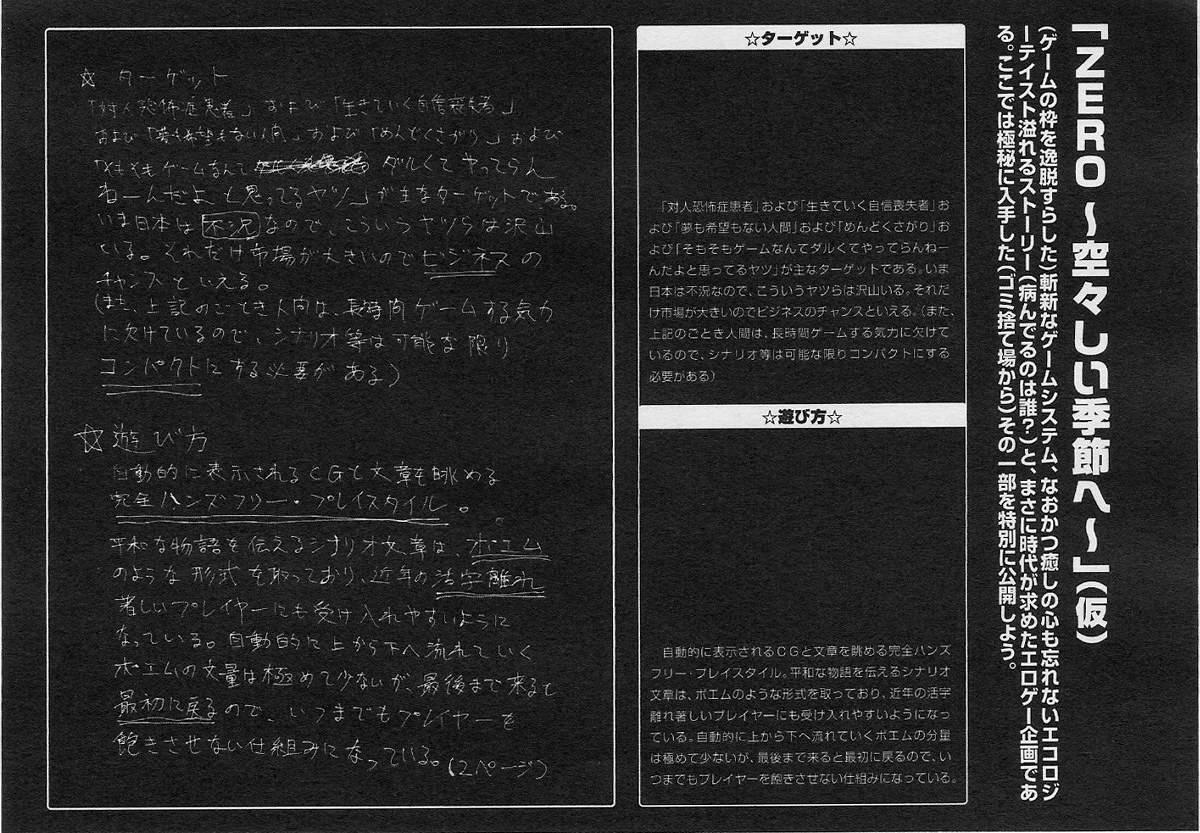 「ZERO ～空々しい季節へ～」(仮)
(ゲームの枠を逸脱すらした)斬新なゲームシステム、なおかつ癒しの心も忘れないエコロジ
ーテイスト溢れるストーリー(病んでるのは誰?)と、まさに時代が求めたエロゲー企画であ
る。ここでは極秘に入手した(ゴミ捨て場から)その一部を特別に公開しよう。
☆ターゲット☆
「対人恐怖症患者」および「生きていく自信喪失者」お
よび「夢も希望もない人間」および「めんどくさがり」お
よび「そもそもゲームなんてダルくてやってらんねー
んだよと思ってるヤツ」が主なターゲットである。いま
日本は不況なので、こういうヤツらは沢山いる。それだ
け市場が大きいのでビジネスのチャンスといえる。(また、
上記のごとき人間は、長時間ゲームする気力に欠けて
いるので、シナリオ等は可能な限りコンパクトにする
必要がある)
☆遊び方☆
自動的に表示されるCGと文章を眺める完全ハンズ
フリー・プレイスタイル。平和な物語を伝えるシナリオ
文章は、ポエムのような形式を取っており、近年の活字
離れ著しいプレイヤーにも受け入れやすいようになっ
ている。自動的に上から下へ流れていくポエムの分量
は極めて少ないが、最後まで来ると最初に戻るので、い
つまでもプレイヤーを飽きさせない仕組みになっている。
☆ ターゲット
「対人恐怖症患者」および「生きていく自信喪失者」
および「夢も希望もない人間」および「めんどくさがり」および
「そもそもゲームなんて ダルくてやってらん
ねーんだよと思ってるヤツ」が主なターゲットである。
いま日本は不況なので、こういうヤツらは沢山
いる。それだけ市場が大きいのでビジネスの
チャンスといえる。
(また、上記のごとき人間は、長時間ゲームする気力
に欠けているので、シナリオ等は可能な限り
コンパクトにする必要がある)
☆遊び方
自動的に表示されるCGと文章を眺める
完全ハンズフリー・プレイスタイル。
平和な物語を伝えるシナリオ文章は、ポエム
のような形式を取っており、近年の活字離れ
著しいプレイヤーにも受け入れやすいように
なっている。自動的に上から下へ流れていく
ポエムの文量は極めて少ないが、最後まで来ると
最初に戻るので、いつまでもプレイヤーを
飽きさせない仕組みになっている。(2ページ)